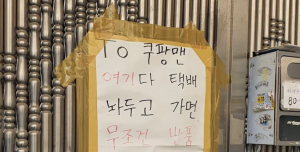 TO 쿠팡맨
여기다 택배
놔두고 가면
무조건 반품
80